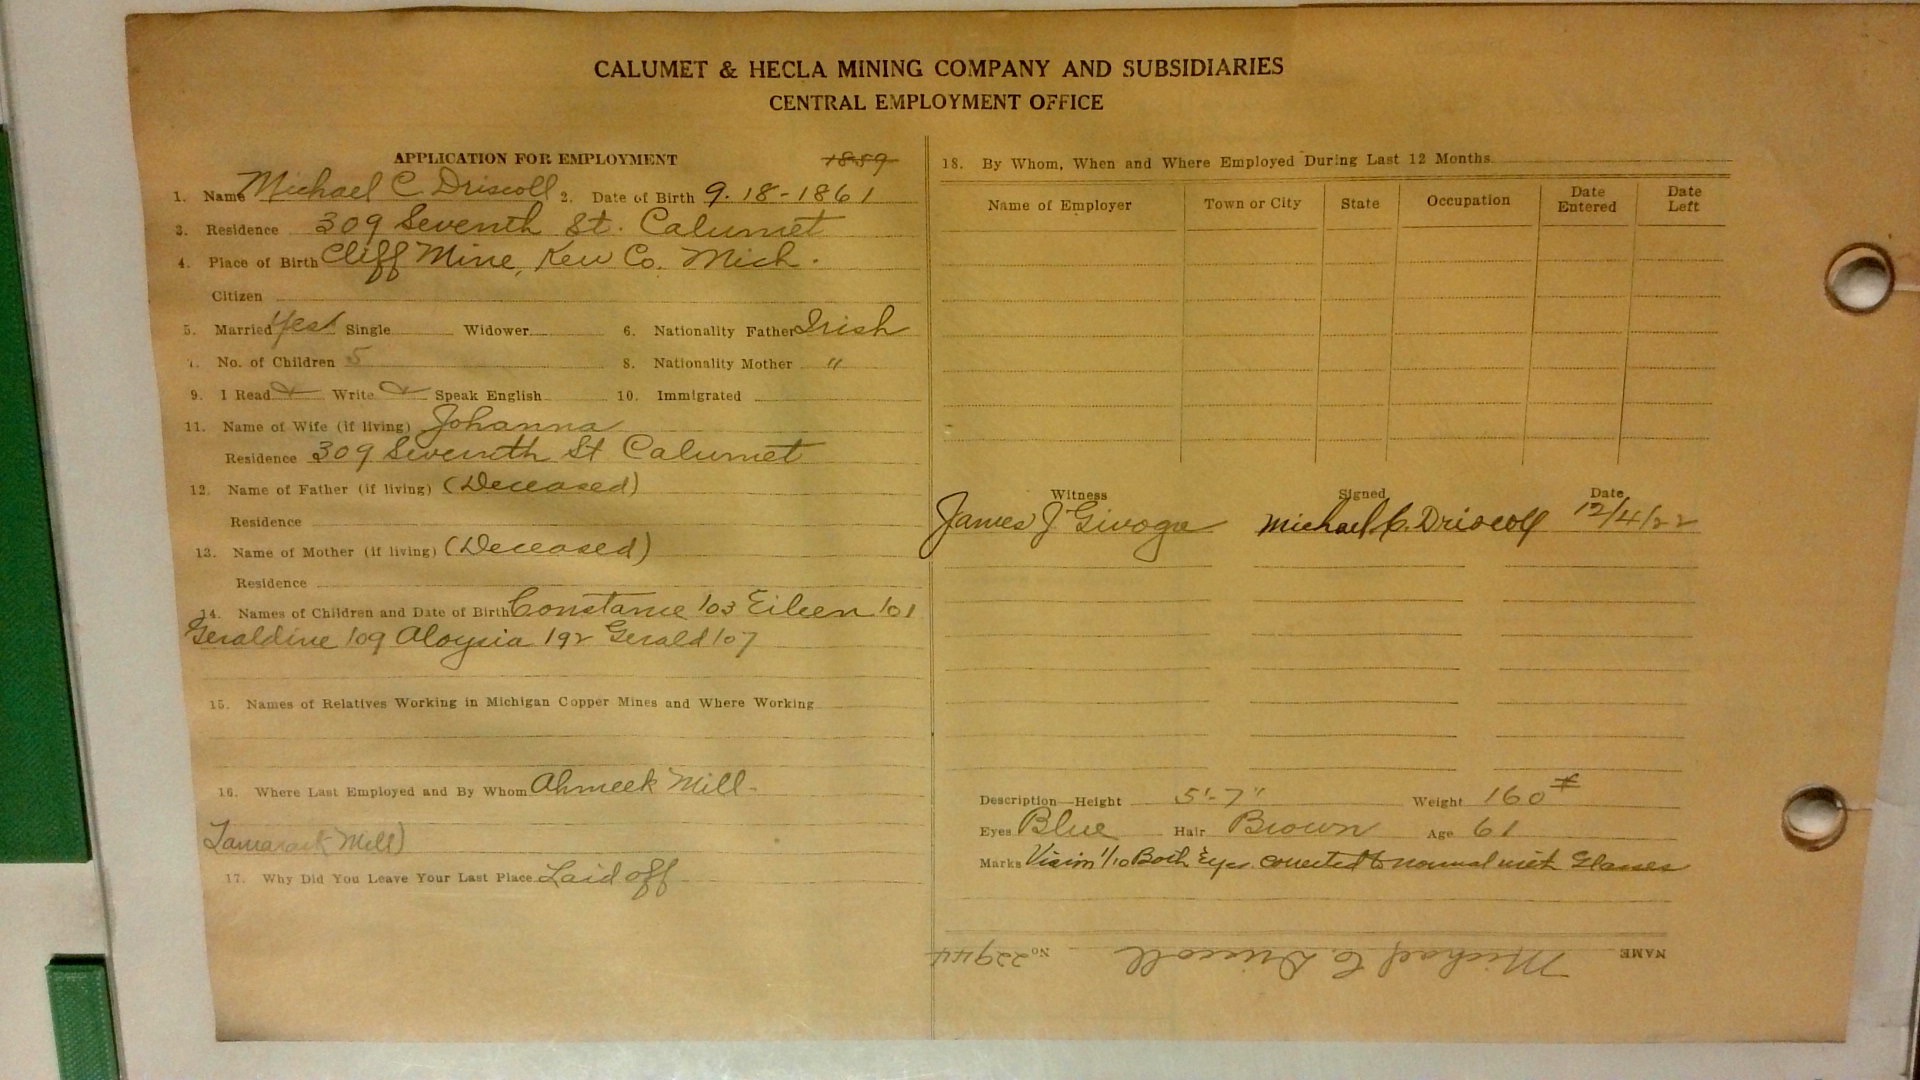 CALUMET & HECLA MINING COMPANY AND SUBSIDIARIES
CENTRAL EMPLOYMENT OFFICE
APPLICATION FOR EMPLOYMENT 1889
1. Name Michael C. Driscoll 2. Date of Birth 9-18-1861
3. Residence 309 Seventh St. Calumet
4. Place of Birth Cliff Mine, Kew Co. Mich.
Citizen
5. Married Yes Single Widower 6. Nationality Father Irish
7. No. of Children 5 8. Nationality Mother "
9. I Read Write Speak English 10. Immigrated
11. Name of Wife (if living) Johanna
Residence 309 Seventh St Calumet
12. Name of Father (if living) (Deceased)
Residence
13. Name of Mother (if living) (Deceased)
Residence
14. Names of Children and Date of Birth Constance 103 Eileen 101
Geraldine 109 Aloysia 192 Gerald 107
15. Names of Relatives Working in Michigan Copper Mines and Where Working
16. Where Last Employed and By Whom Ahmeek Mill-
Tamarack Mill)
17. Why Did You Leave Your Last Place Laid off
18. By Whom, When and Where Employed During Last 12 Months
Name of Employer Town or City State Occupation Date Entered Date Left
Witness Signed Date
James J Michael C. Driscoll 12/4/22
Description—Height 5'-7" Weight 160#
Eyes Blue Hair Brown Age 61
Marks Vision 1/10 Both Eyes corrected to normal with Glasses
NAME Michael C. Driscoll No 22944